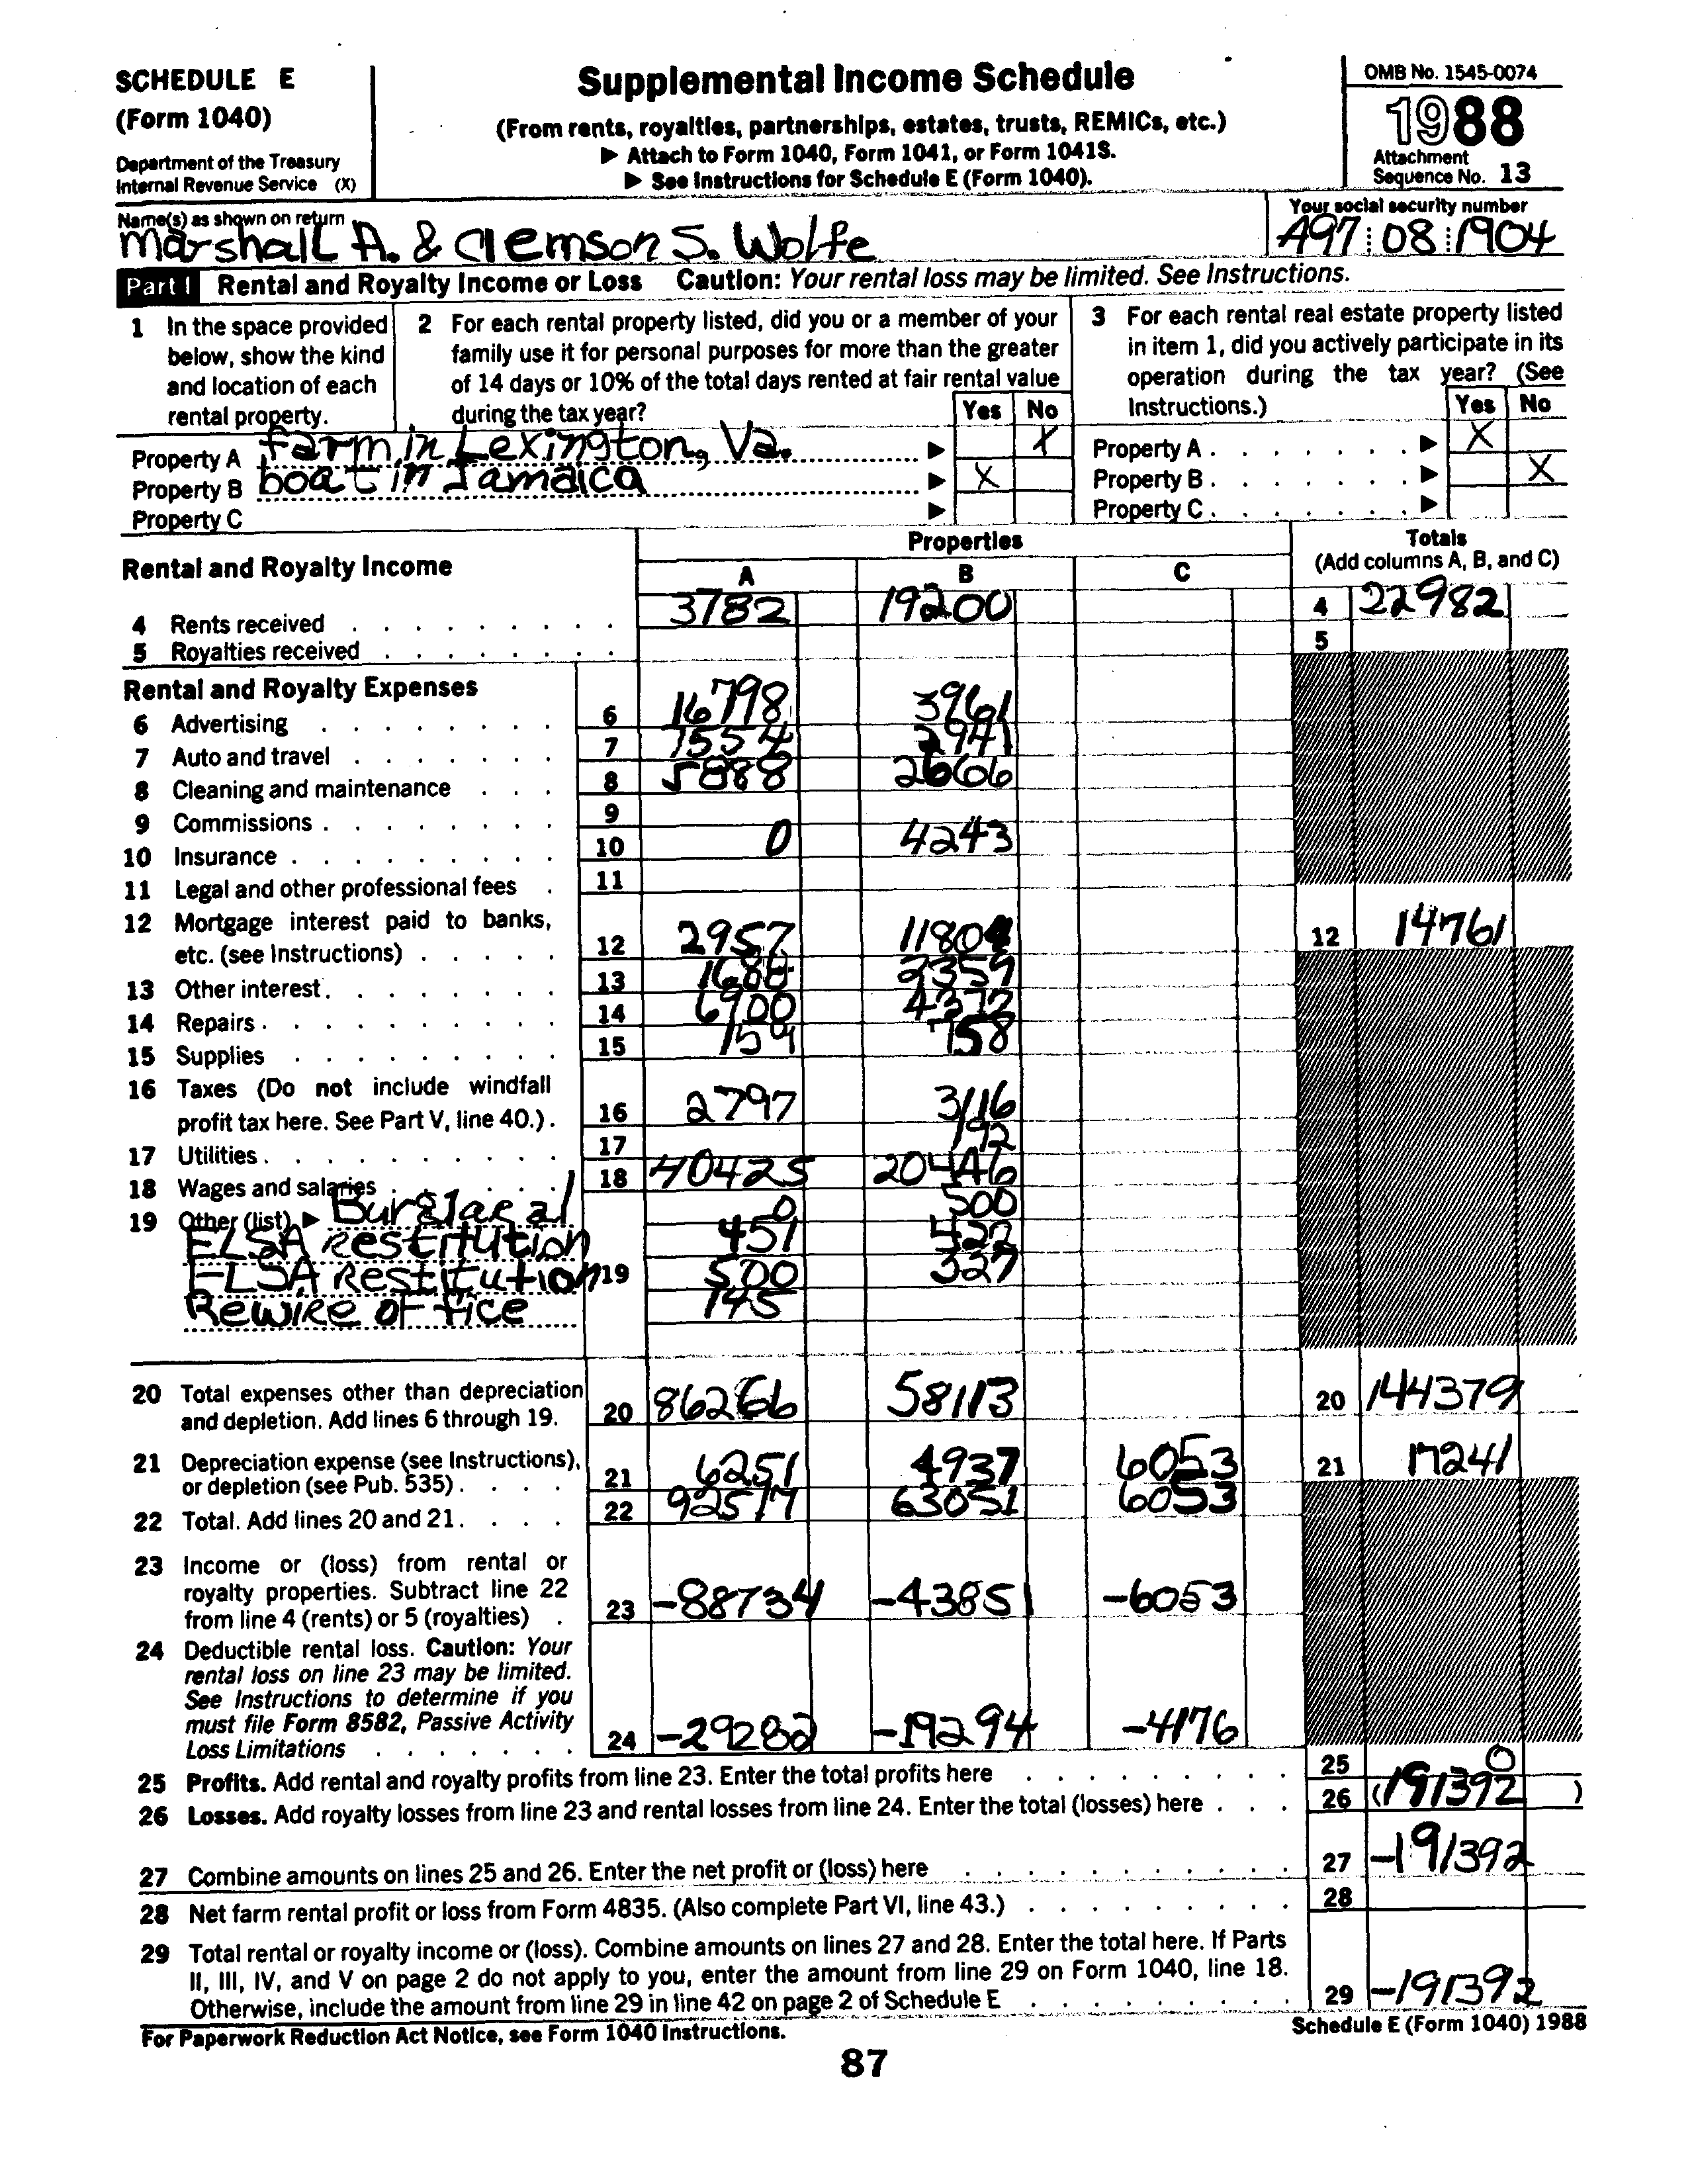 SCHEDULE E
(Form 1040)
Department of the Treasury
Internal Revenue Service (X)
Supplemental Income Schedule
(From rents, royalties, partnerships, estates, trusts, REMICs, etc.)
▶ Attach to Form 1040, Form 1041, or Form 1041S.
▶ See Instructions for Schedule E (Form 1040).
OMB No. 1545-0074
1988
Attachment
Sequence No. 13
Name(s) as shown on return
Marshall A. & Clemson S. Wolfe
Your social security number
A97 08 1904
Part I Rental and Royalty Income or Loss Caution: Your rental loss may be limited. See Instructions.
1 In the space provided
below, show the kind
and location of each
rental property.
2 For each rental property listed, did you or a member of your
family use it for personal purposes for more than the greater
of 14 days or 10% of the total days rented at fair rental value
during the tax year? Yes No
3 For each rental real estate property listed
in item 1, did you actively participate in its
operation during the tax year? (See
Instructions.) Yes No
Property A farm in Lexington, Va. ▶ X
Property B boat in Jamaica ▶ X
Property C ▶
Property A ▶ X
Property B ▶ X
Property C ▶
Rental and Royalty Income
Properties
A B C
Totals
(Add columns A, B, and C)
4 Rents received 3782 19200 4 22982
5 Royalties received 5
Rental and Royalty Expenses
6 Advertising 6 16798 3961
7 Auto and travel 7 7554 2941
8 Cleaning and maintenance 8 5888 2666
9 Commissions 9
10 Insurance 10 0 4243
11 Legal and other professional fees 11
12 Mortgage interest paid to banks,
etc. (see Instructions) 12 2957 11804 12 14761
13 Other interest 13 1688 2359
14 Repairs 14 6900 4372
15 Supplies 15 159 758
16 Taxes (Do not include windfall
profit tax here. See Part V, line 40.) 16 2797 3116
17 Utilities 17 192
18 Wages and salaries 18 40425 20446
19 Other (list) ▶ Burglar al 0 500
ELSA Restitution 451 422
FLSA Restitution 19 500 327
Rewire office 145
20 Total expenses other than depreciation
and depletion. Add lines 6 through 19. 20 86266 58113 20 144379
21 Depreciation expense (see Instructions),
or depletion (see Pub. 535) 21 6251 4937 6053 21 17241
22 Total. Add lines 20 and 21. 22 92517 63051 6053
23 Income or (loss) from rental or
royalty properties. Subtract line 22
from line 4 (rents) or 5 (royalties) 23 -88734 -43851 -6053
24 Deductible rental loss. Caution: Your
rental loss on line 23 may be limited.
See Instructions to determine if you
must file Form 8582, Passive Activity
Loss Limitations 24 -29282 -19294 -4176
25 Profits. Add rental and royalty profits from line 23. Enter the total profits here 25 0
26 Losses. Add royalty losses from line 23 and rental losses from line 24. Enter the total (losses) here 26 (191392)
27 Combine amounts on lines 25 and 26. Enter the net profit or (loss) here 27 -191392
28 Net farm rental profit or loss from Form 4835. (Also complete Part VI, line 43.) 28
29 Total rental or royalty income or (loss). Combine amounts on lines 27 and 28. Enter the total here. If Parts
II, III, IV, and V on page 2 do not apply to you, enter the amount from line 29 on Form 1040, line 18.
Otherwise, include the amount from line 29 in line 42 on page 2 of Schedule E 29 -191392
For Paperwork Reduction Act Notice, see Form 1040 Instructions.
Schedule E (Form 1040) 1988
87